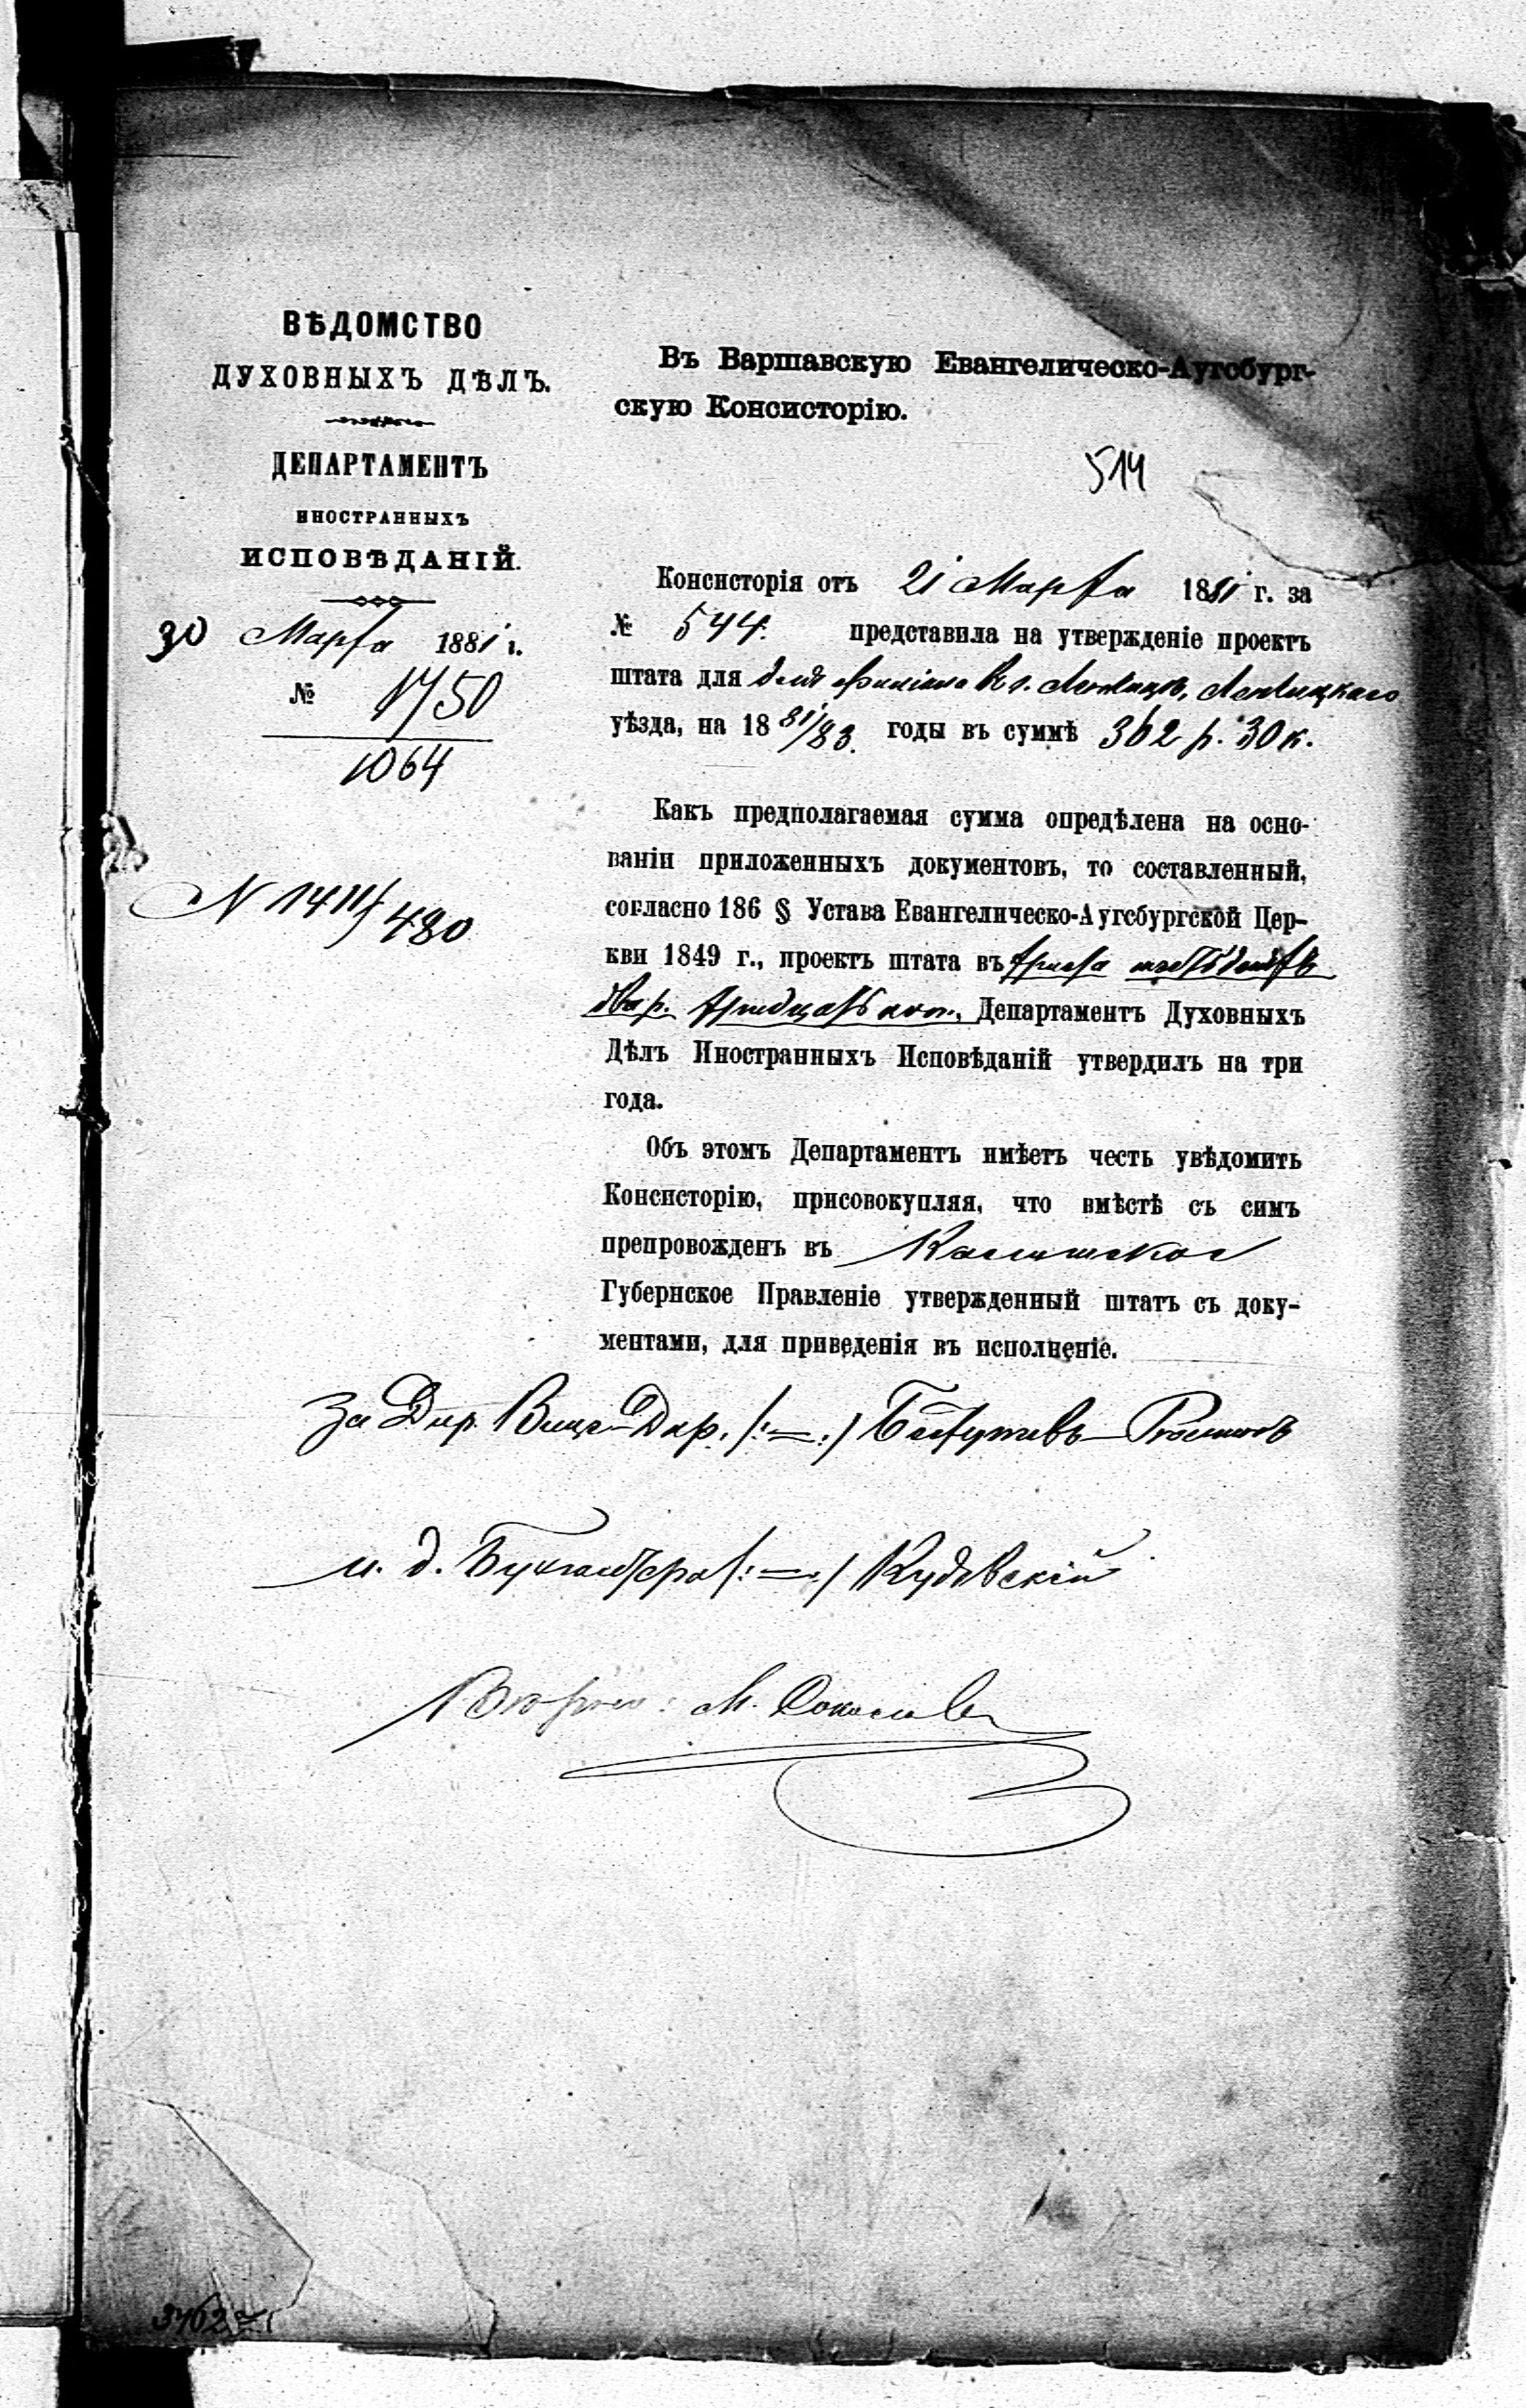 ВѢДОМСТВО
ДУХОВНЫХЪ ДѢЛЪ.
ДЕПАРТАМЕНТЪ
ИНОСТРАННЫХЪ
ИСПОВѢДАНІЙ.
30 Марта 1881 г.
№ 1750
1064
N 1411/480
Въ Варшавскую Евангелическо-Аугсбург-
скую Консисторію.
514
Консисторія отъ 21 Марта 1881 г. за
№ 544. представила на утвержденіе проектъ
штата для филіала Ленчицкаго
уѣзда, на 1881/83. годы въ суммѣ 362 р. 30 к.
Какъ предполагаемая сумма опредѣлена на осно-
ваніи приложенныхъ документовъ, то составленный,
согласно 186 § Устава Евангелическо-Аугсбургской Цер-
кви 1849 г., проектъ штата въ триста шестьдесятъ
два р. тридцать коп., Департаментъ Духовныхъ
Дѣлъ Иностранныхъ Исповѣданій утвердилъ на три
года.
Объ этомъ Департаментъ имѣетъ честь увѣдомить
Консисторію, присовокупляя, что вмѣстѣ съ симъ
препровожденъ въ Калишское
Губернское Правленіе утвержденный штатъ съ доку-
ментами, для приведенія въ исполненіе.
За Дир. Вице-Дир. /:—:/ Бестужевъ-Рюминъ
и. д. Бухгалтера /:—:/ Кудявскій
Вѣрно: М. Соколов
3762